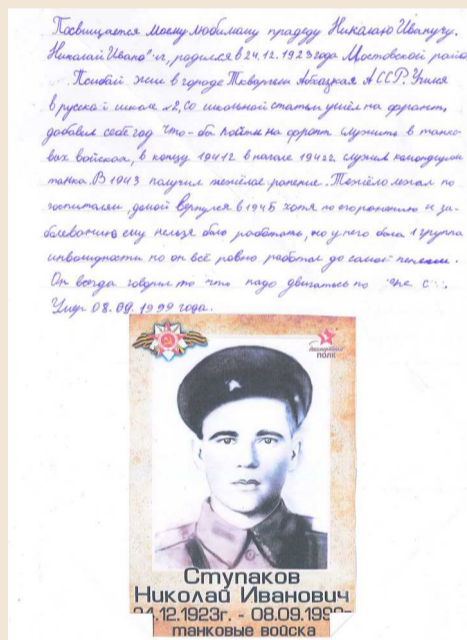 Посвящается моему любимому прадеду Николаю Ивановичу.
Николай Ивано"ч, родился в 24.12.1923 года Мостовской район
Псибай жил в городе Ткварчели Абхазкая АССР. Учился
в русской школе №2, со школьной статьи ушёл на фронт,
добавил себе год что-ба пойти на фронт служить в танко-
вах войсках, в концу 1941г в начале 1942г. служил командиром
танка. В 1943 получил тяжёлое ранение. Тежёло лежал по
госпиталям, домой вернулся в 1945 хотя по его ранению и за-
болеванию ему нельзя было работать, но у него была 1 группа
инвалидности но он всё ровно работал до самой пенсии.
Он всегда говорил то что надо двигаться по
Умер 08.09.1999 года.
бессмертный
ПОЛК
Ступаков
Николай Иванович
24.12.1923г. - 08.09.1999г
танковые войска